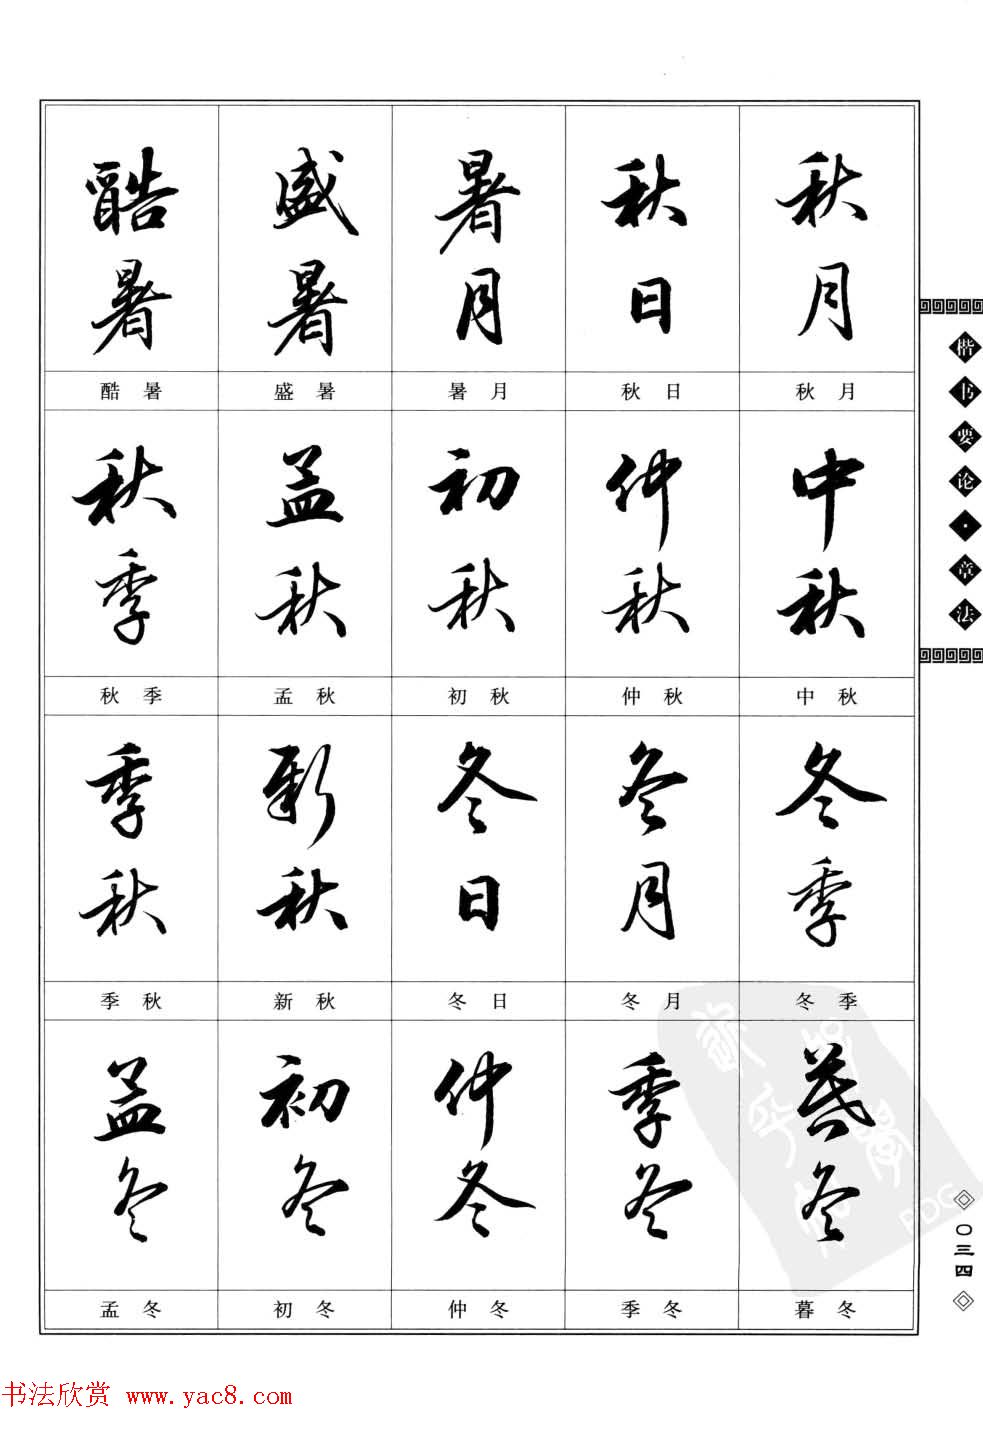 酷暑 盛暑 暑月 秋日 秋月
酷暑 盛暑 暑月 秋日 秋月
秋季 孟秋 初秋 仲秋 中秋
秋季 孟秋 初秋 仲秋 中秋
季秋 新秋 冬日 冬月 冬季
季秋 新秋 冬日 冬月 冬季
孟冬 初冬 仲冬 季冬 暮冬
孟冬 初冬 仲冬 季冬 暮冬
楷书要论·章法
〇三四
PDG
书法欣赏 www.yac8.com